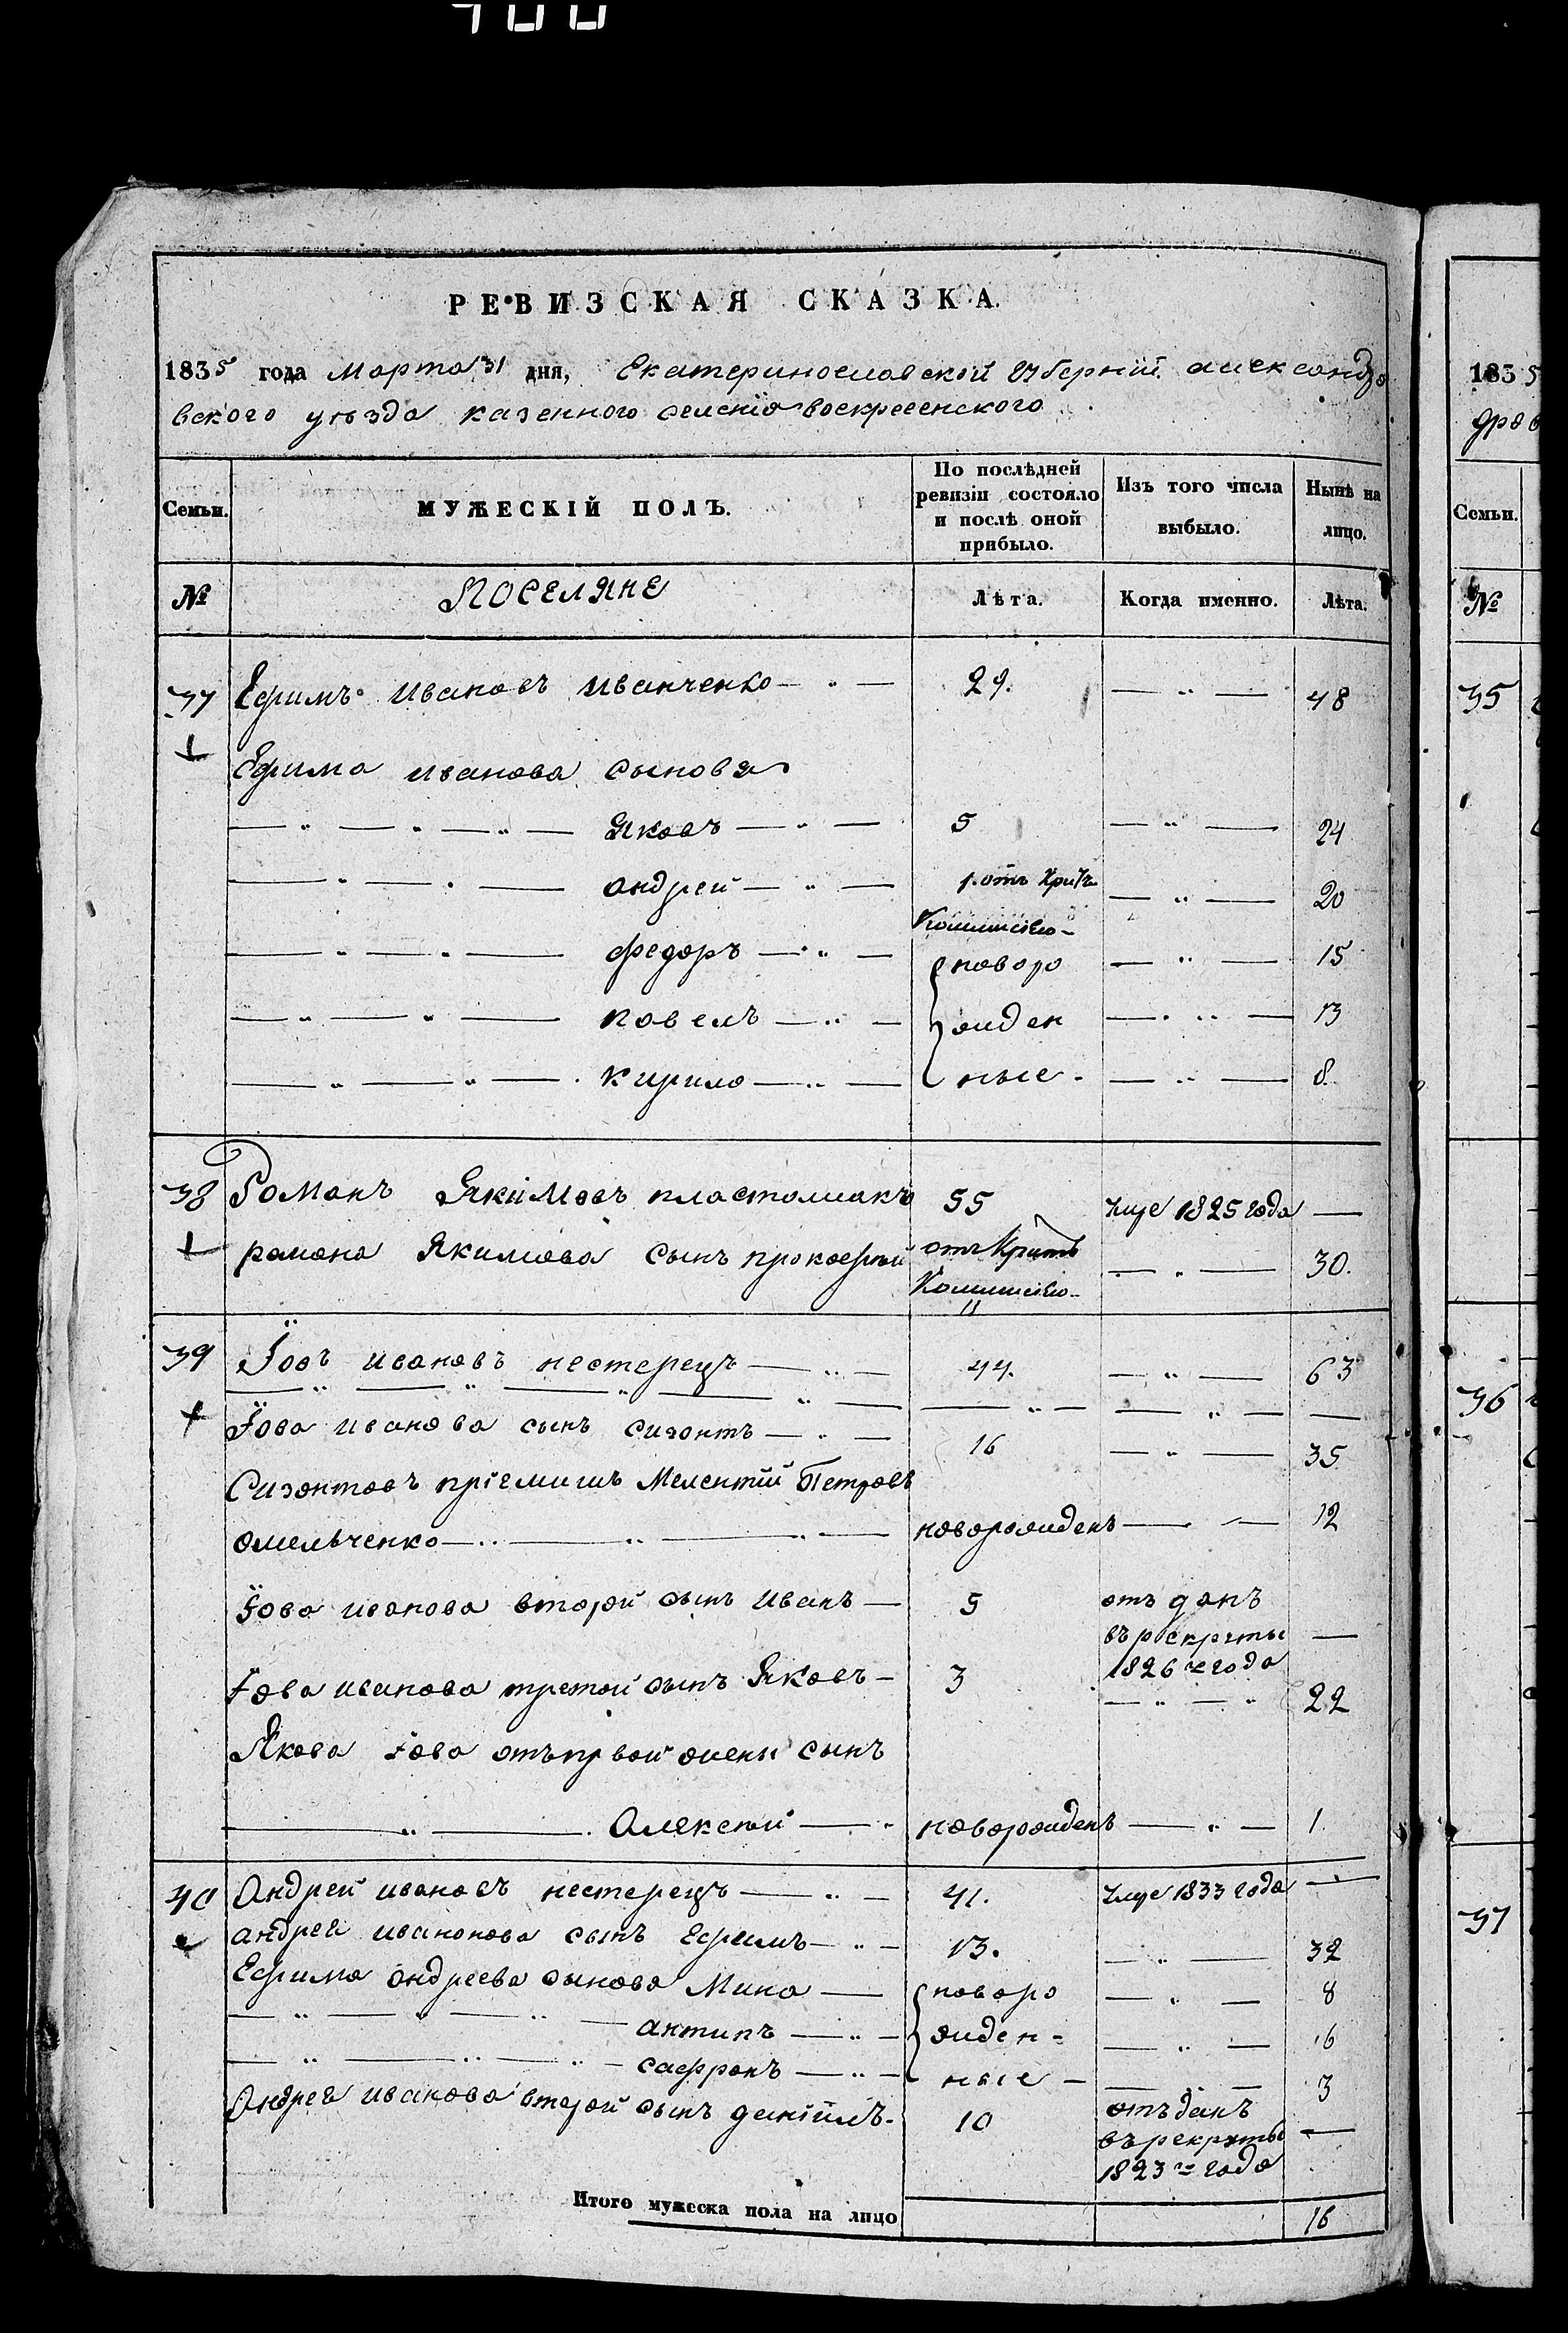 РЕВИЗСКАЯ СКАЗКА.
1835 года Марта 31 дня, Екатеринославской Губерніи александро
вского уѣзда казенного селенія воскресенского
Семьи. МУЖЕСКІЙ ПОЛЪ. По послѣдней ревизіи состояло и послѣ оной прибыло. Изъ того числа выбыло. Нынѣ на лицо.
№ Поселяне Лѣта. Когда именно. Лѣта.
37 Ефимъ Ивановъ Иванченко 29. 48
Ефима иванова сыновя
Яковъ 5 24
андрей 1. отъ 20
федоръ новоро 15
павелъ жден 13
кирило ные 8
38 Романъ Якимовъ 55 1825 года
романа Якимова сынъ прокофѣй 30.
11
39 Іовъ ивановъ нестерецъ 44. 63
Іова иванова сынъ сизонтъ 16 35
Сизонтовъ пріемишъ Мелентій Петровъ
омельченко новорожденъ 12
Іова иванова второй сынъ иванъ 5 отъ данъ
въ рекруты
1826 года
Іова иванова третой сынъ Яковъ 3 22
Якова Іова отъ первой жены сынъ
алексѣй новорожденъ 1.
40 Андрей ивановъ нестерецъ 41. 1833 года
андрея иванонова сынъ Ефимъ 13. 32
Ефима андреева сынова Мина новоро 8
антипъ жден 6
сафронъ ные 3
Андрея иванова второй сынъ даніилъ 10 отъ данъ
въ рекруты
1823 года
Итого мужеска пола на лицо 16
1835
дров
Семьи.
№
35
36
37